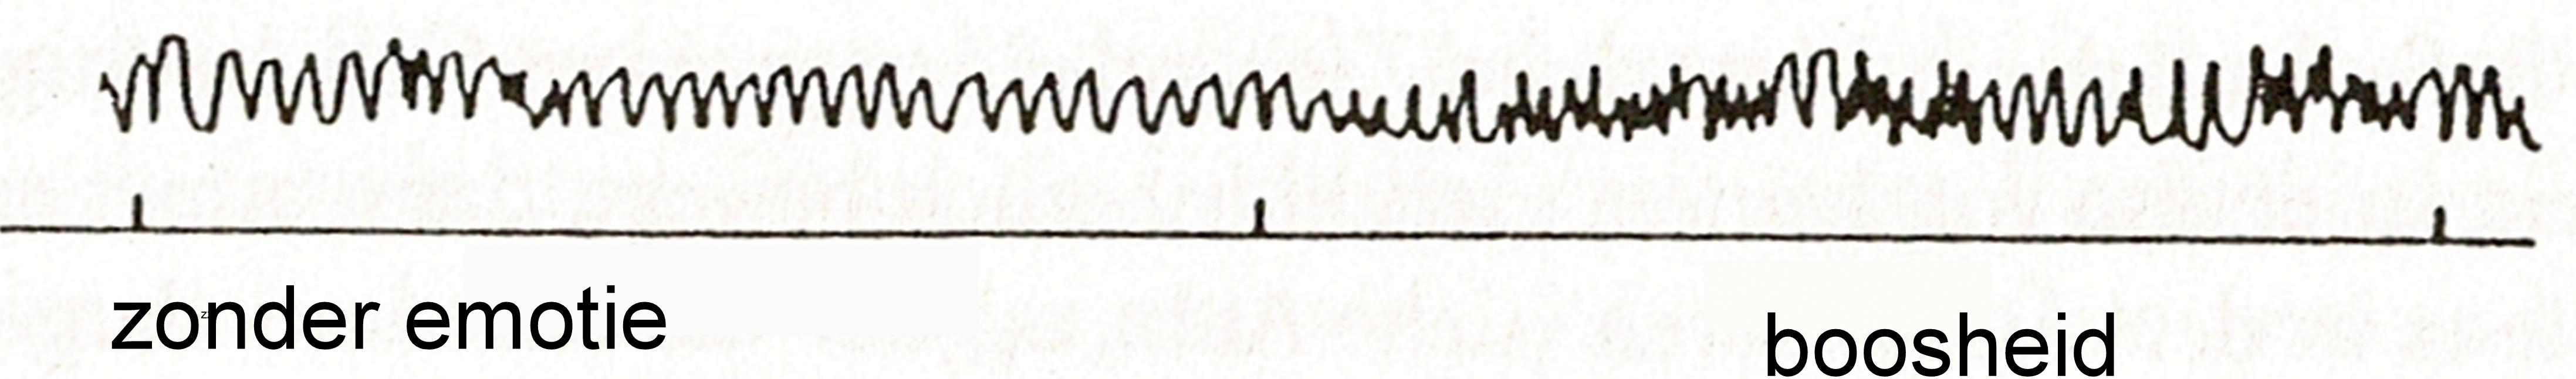 zonder emotie
boosheid